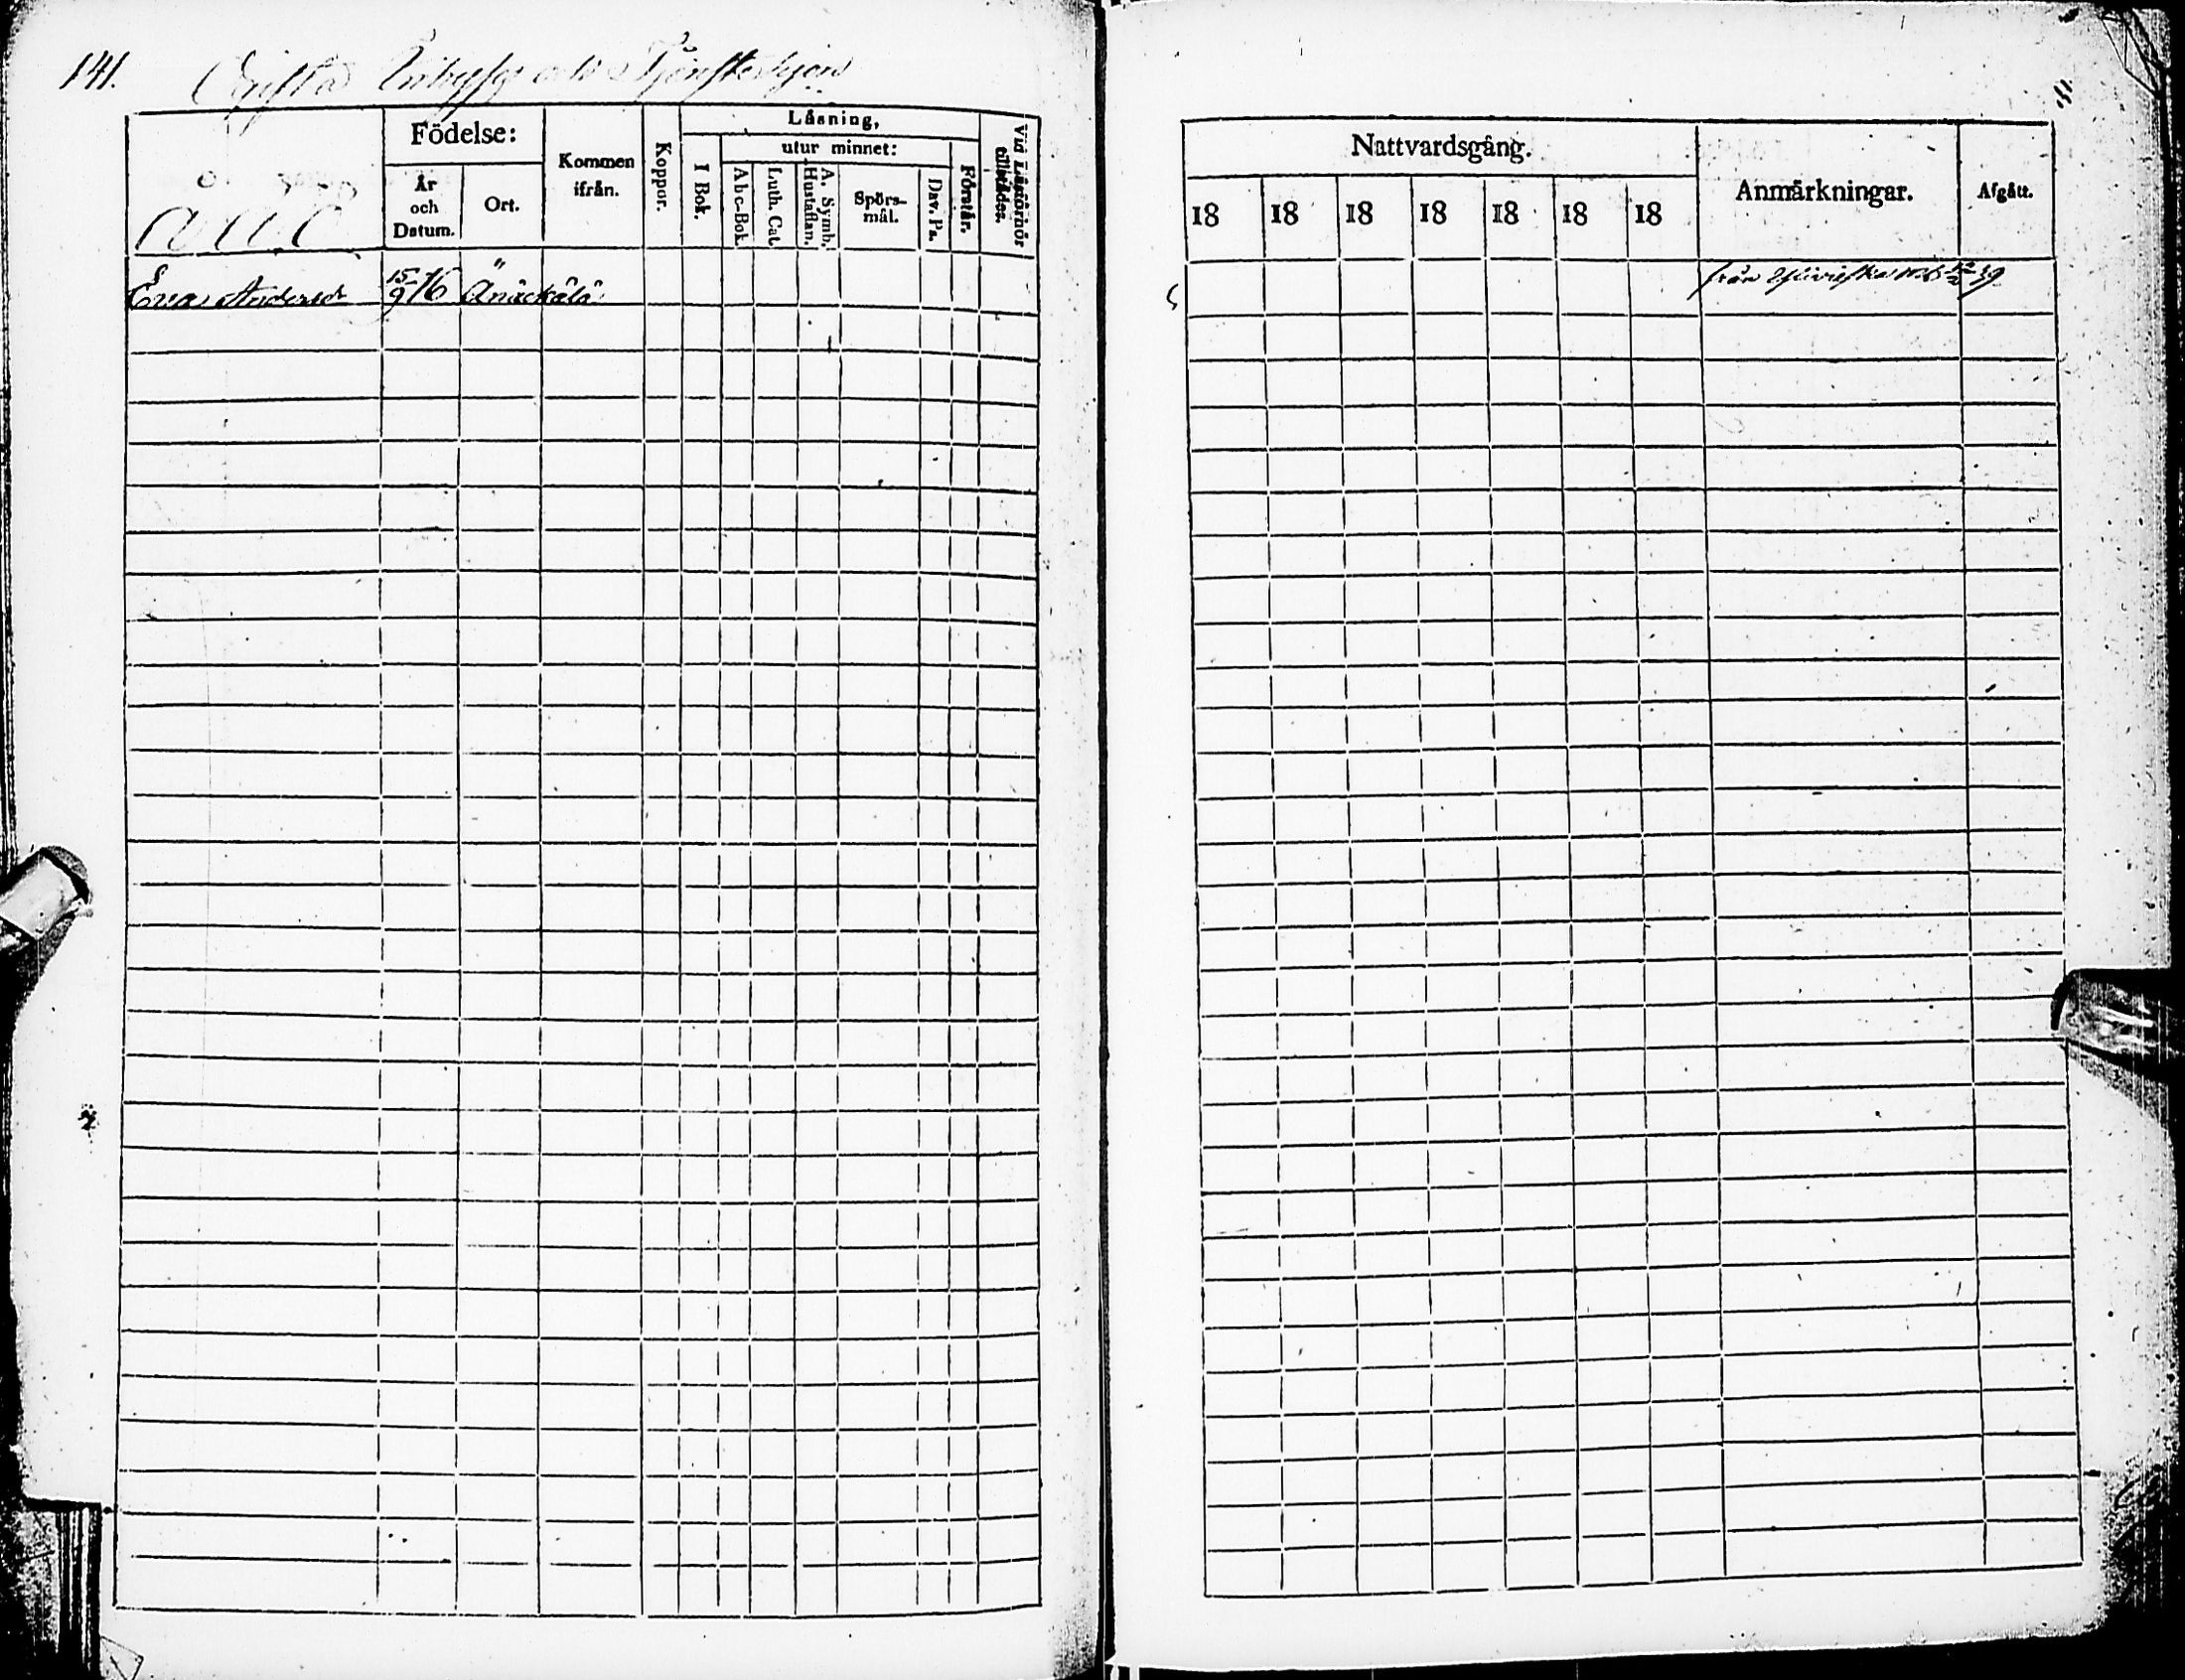 141. Ogifta Inhyses och Tjensthejon
Födelse:
År och Datum.
Ort.
Kommen ifrån.
Koppor.
Läsning,
I Bok.
utur minnet:
Abc-Bok.
Luth. Cat.
A. Symb. Hustaflan.
Spörs-mål.
Dav. Ps.
Förstår.
Vid Läsförhör tillstädes.
Eva Andersdr 15/9 76 Änäckälä
Nattvardsgång.
18 18 18 18 18 18 18
Anmärkningar.
Afgått.
från